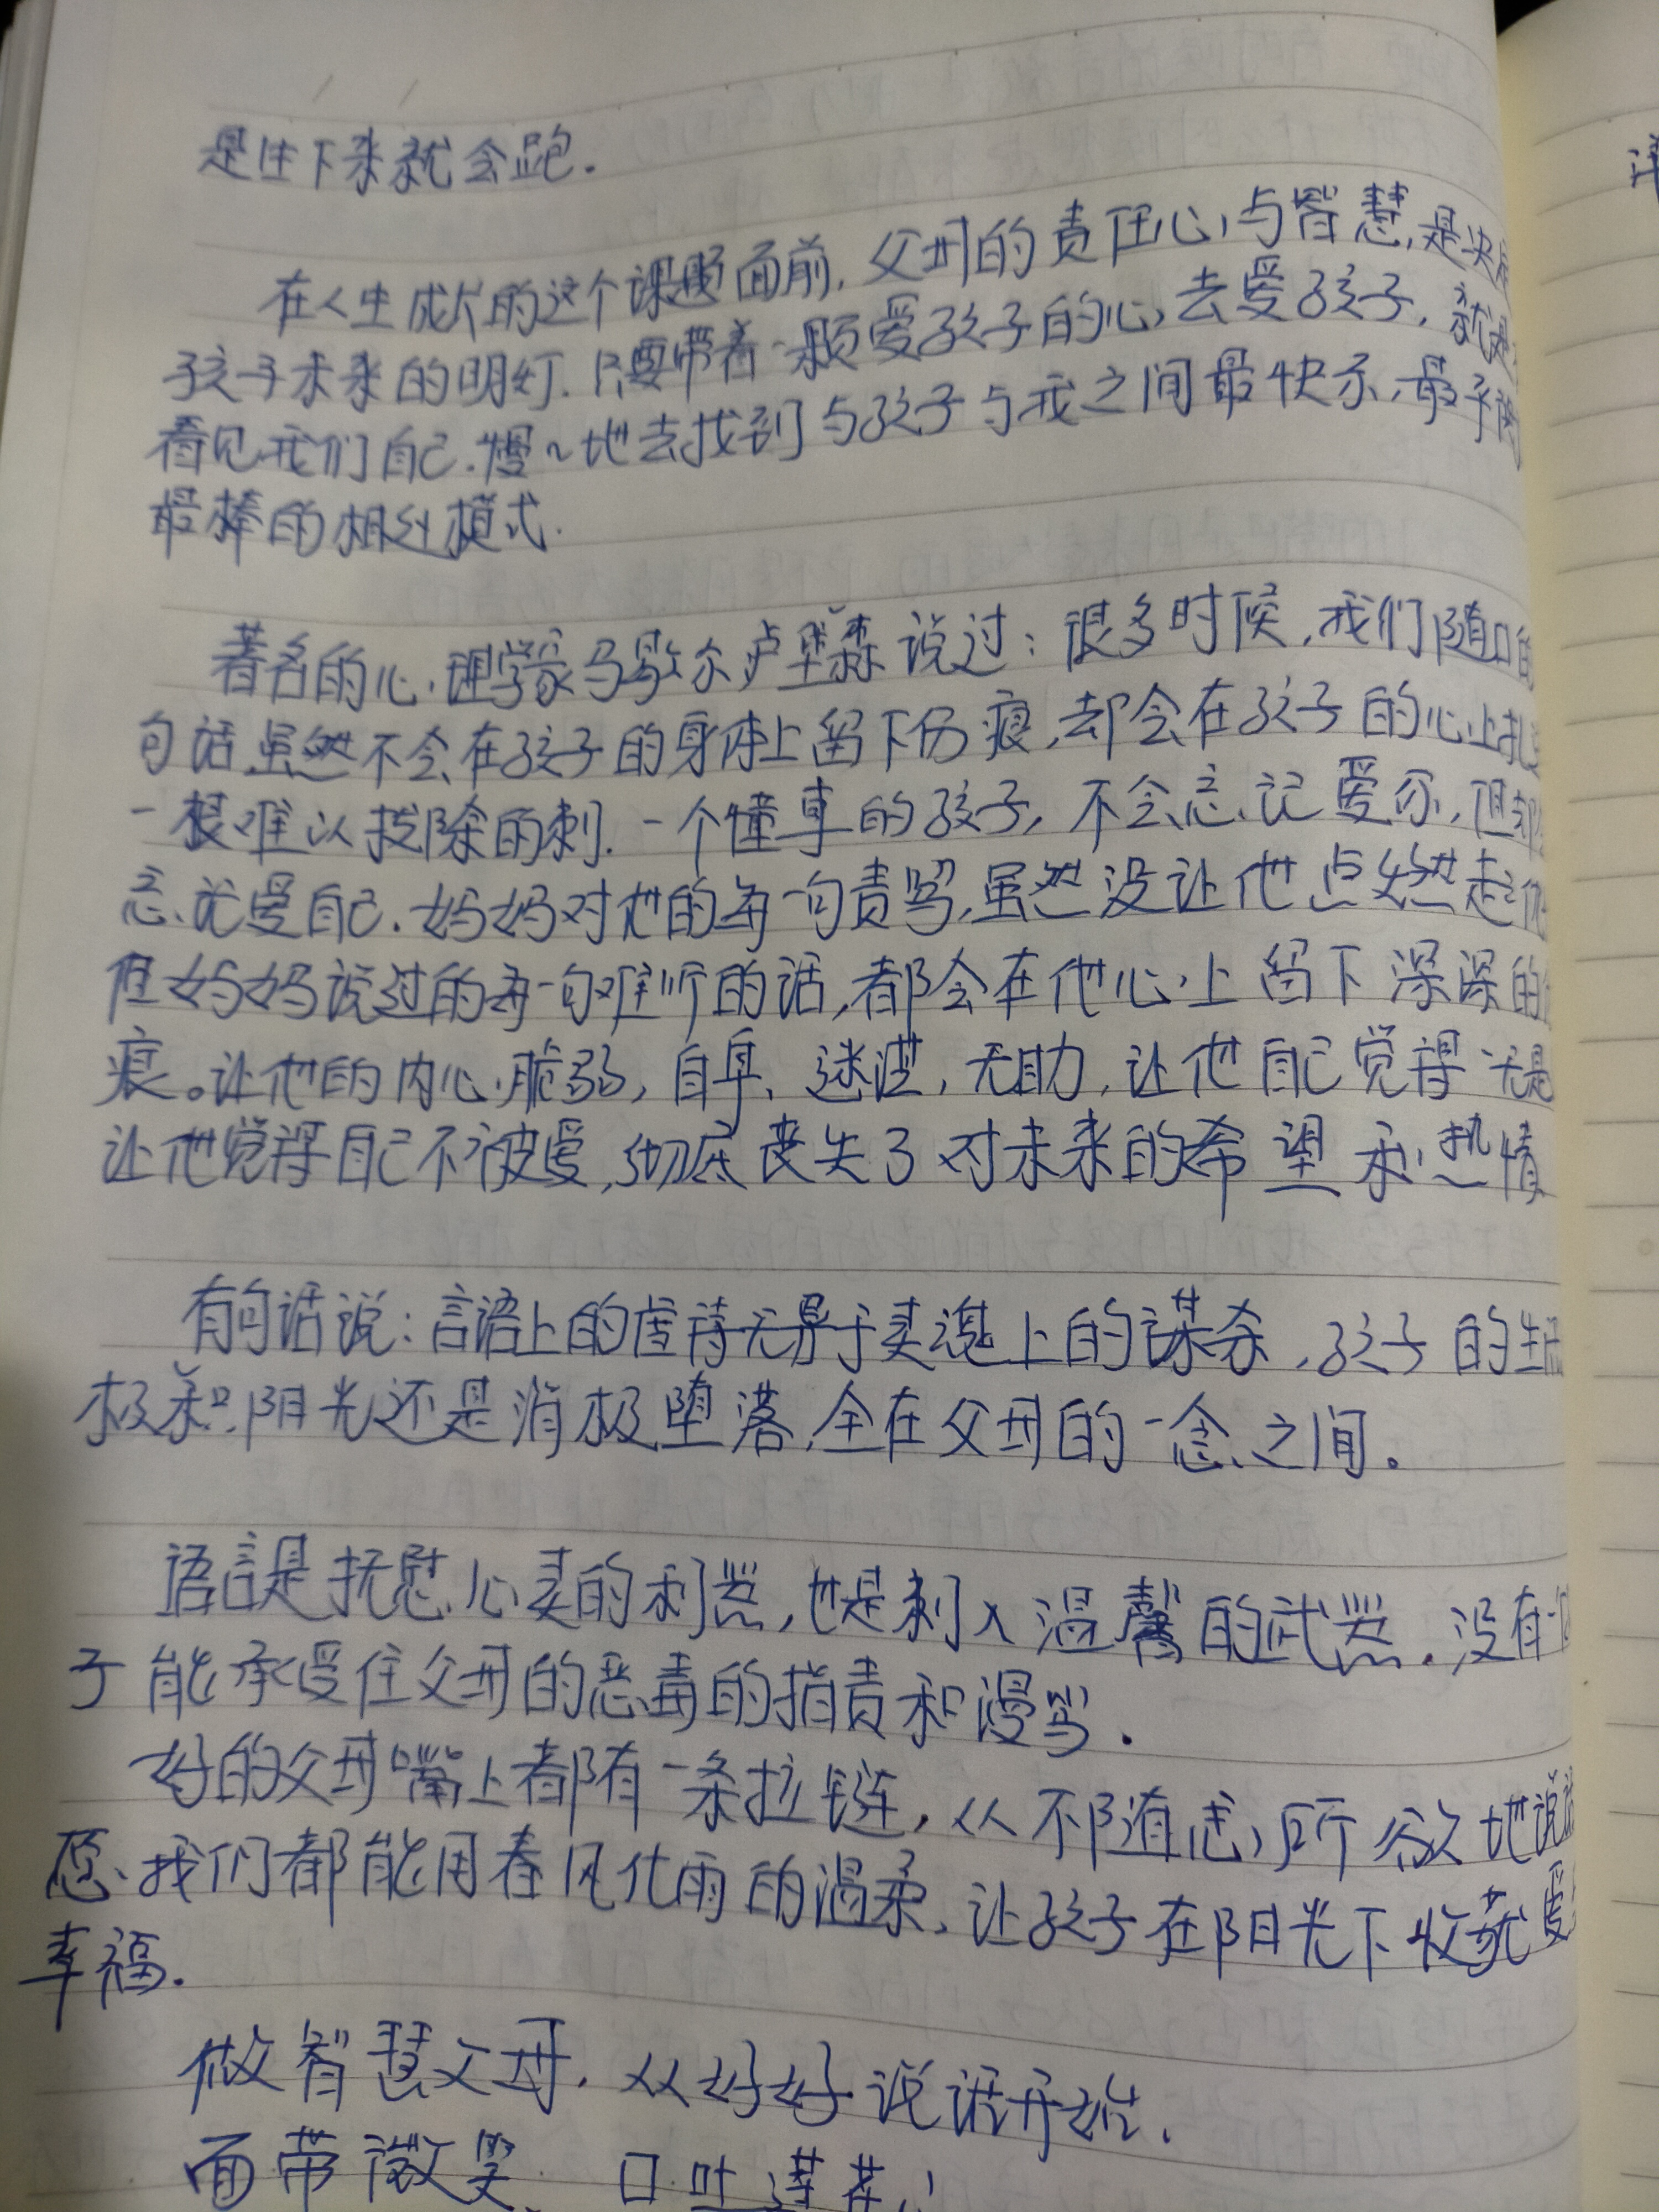 是生下来就会跑.
在人生成长的这个课题面前,父母的责任心与智慧,是决
孩子未来的明灯.只要带着一颗爱孩子的心,去爱孩子,就是
看见我们自己.慢~地去找到与孩子与我之间最快乐,最
最棒的相处模式.
著名的心理学家马歇尔卢里森说过:很多时候,我们随口的
句话虽然不会在孩子的身体上留下伤痕,却会在孩子的心上扎
一根难以拔除的刺.一个懂事的孩子,不会忘记爱你,但却
忘记爱自己.妈妈对他的每一句责骂,虽然没让他点燃起
但妈妈说过的每一句难听的话,都会在他心上留下深深的
痕。让他的内心脆弱,自卑、迷茫,无助,让他自己觉得
让他觉得自己不被爱,彻底丧失了对未来的希望和热情
有句话说:言语上的虐待无异于灵魂上的谋杀,孩子的生
极和阳光还是消极堕落,全在父母的一念之间。
语言是抚慰心灵的利器,也是刺入温馨的武器.没有一
子能承受住父母的恶毒的指责和漫骂.
好的父母嘴上都有一条拉链,从不随心所欲地说
愿我们都能用春风化雨的温柔,让孩子在阳光下收获爱
幸福.
做智慧父母,从好好说话开始.
面带微笑、口吐莲花!